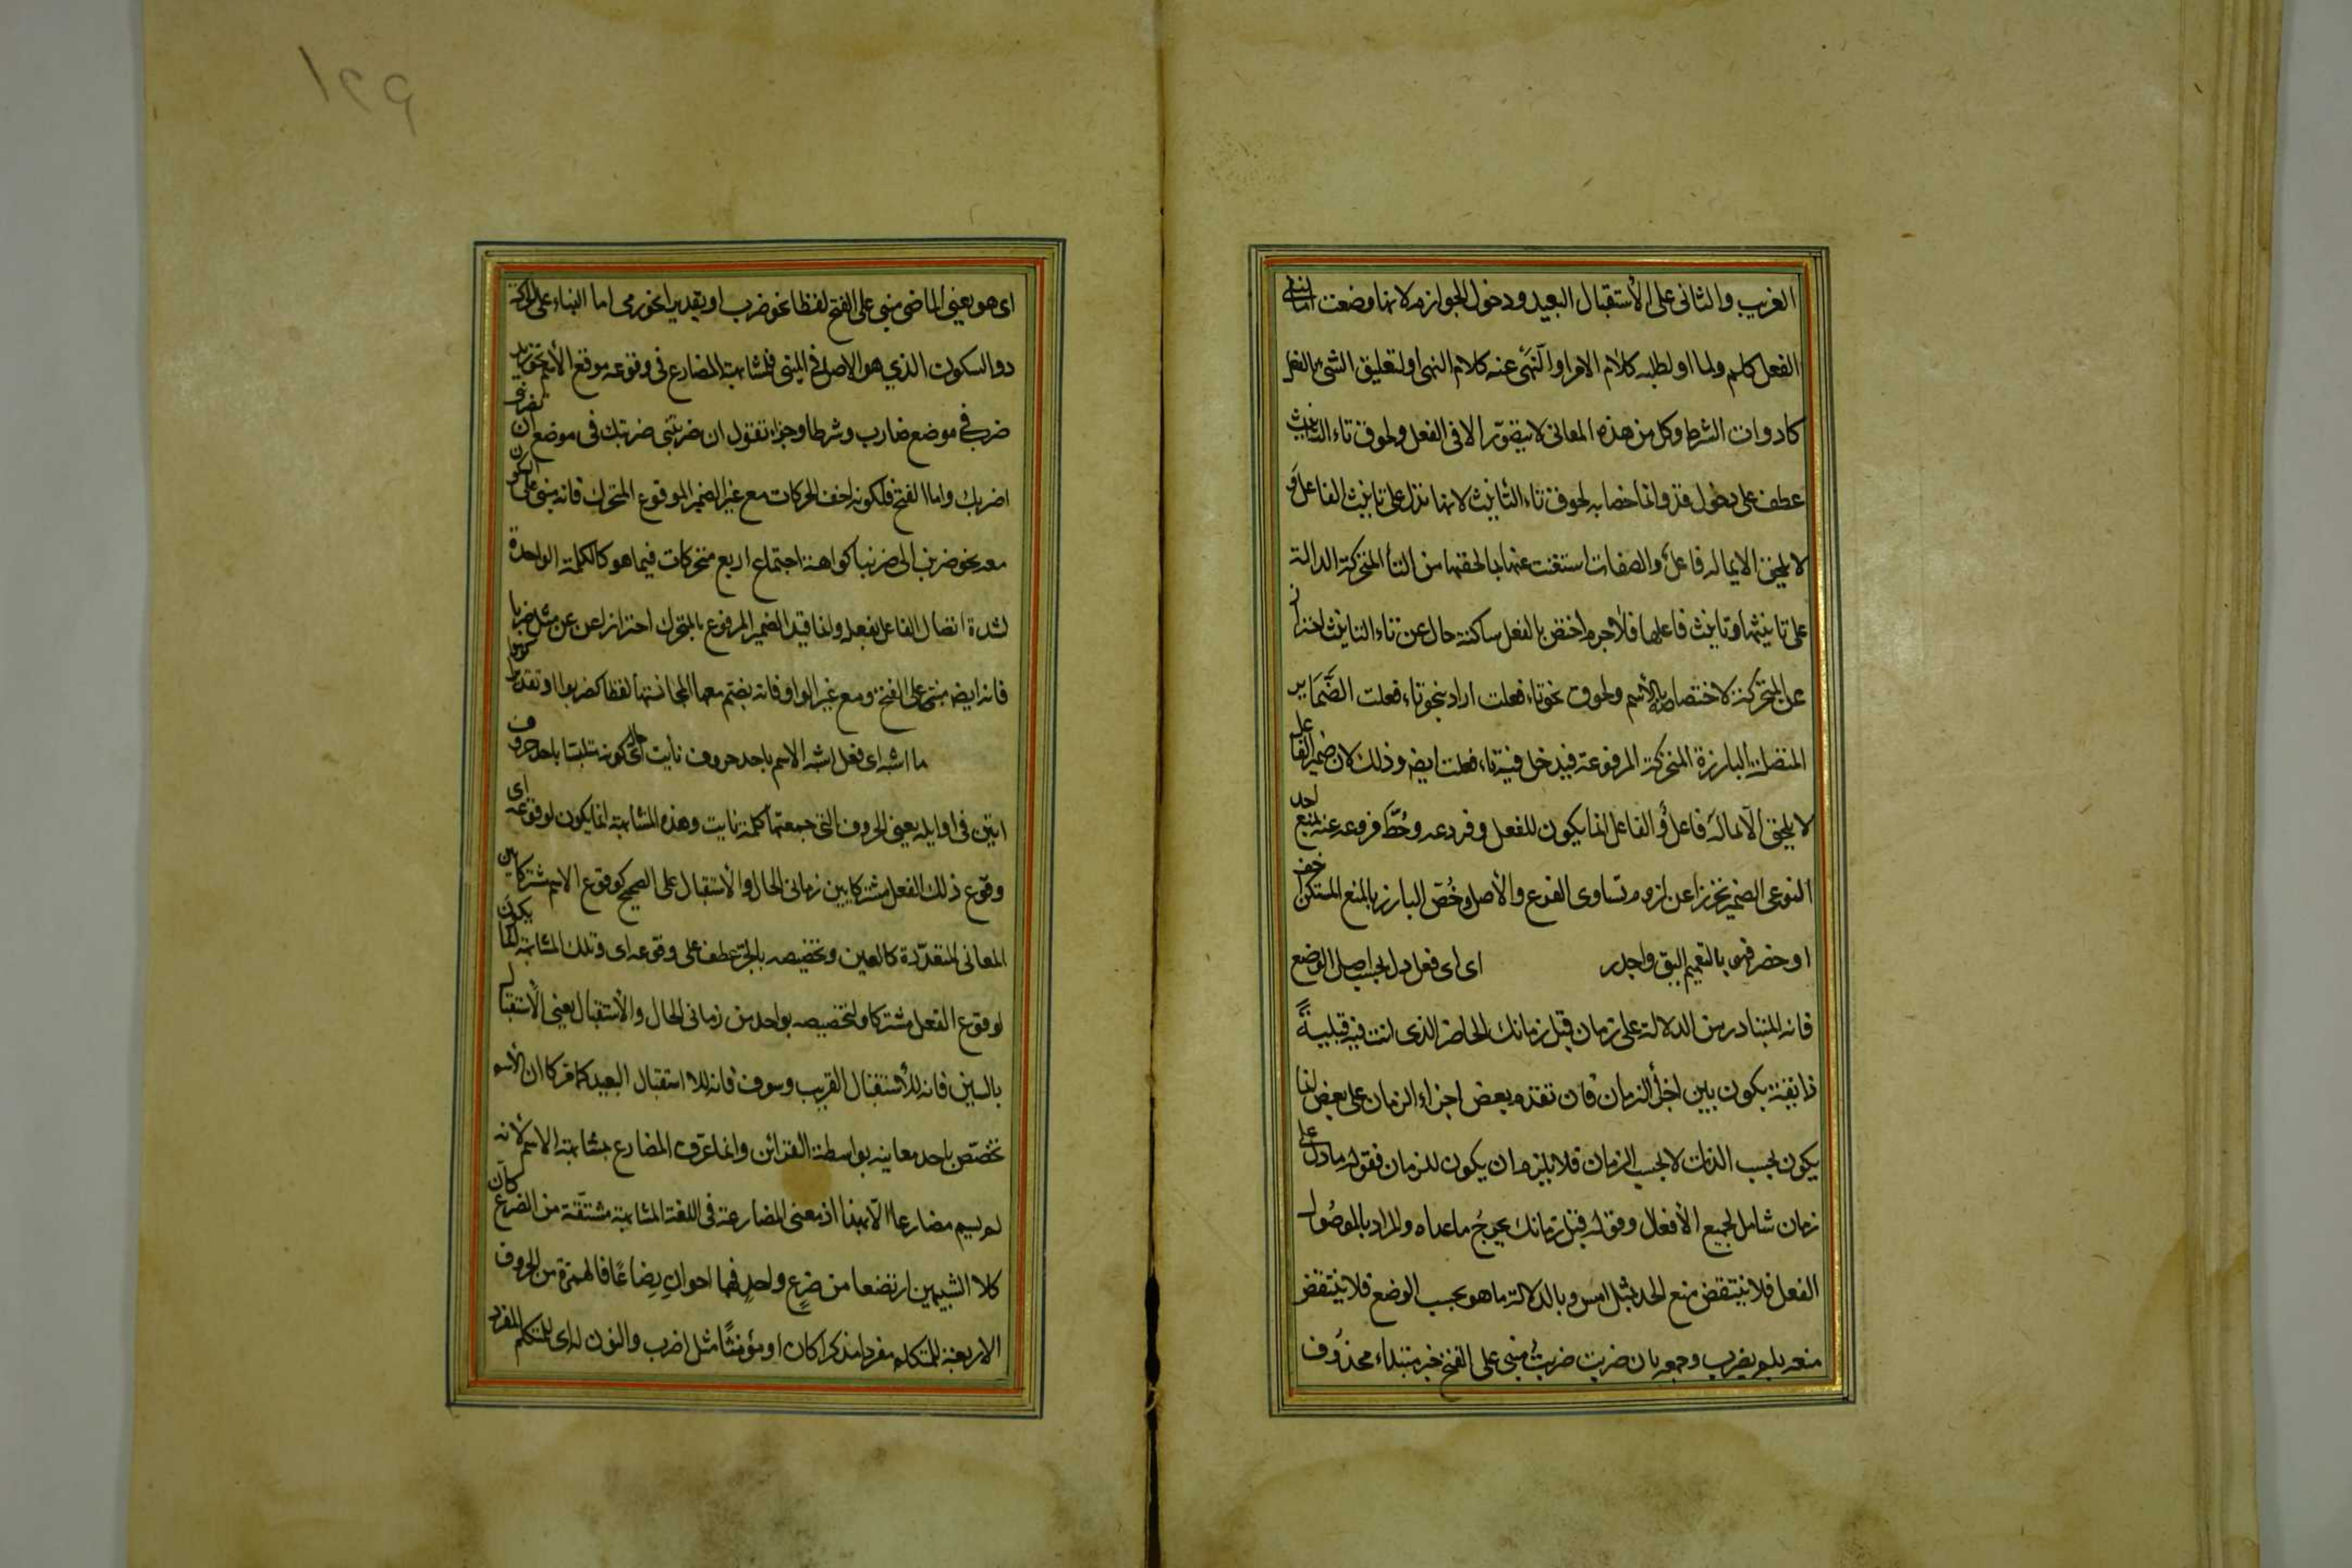 القريب والثانى على الأستقبال البعيد ودخول الجوازم لانها وضعت اما لنفى
الفعل كلم ولما او لطلبه كلام الامر او النهى عنه كلام النهى او لتعليق الشئ بالفعل
كادوات الشرط وكل من هذه المعانى لا يتصور الا فى الفعل ولحوق تاء التانيث
عطف على دخول قد وانما خص به لحوق تاء التانيث لانها تدل على تانيث الفاعل و
لا يلحق الا بما له فاعل والصفات استغنت عنها بما لحقها من التاء المتحركة الدالة
على تانيثها وتانيث فاعلها فلا جرم اختص بالفعل ساكنة حال عن تاء التانيث احترازا
عن المتحركة لاختصاصها بالأسم ولحوق نحو تاء فعلت اراد بنحو تاء فعلت الضَّمَاير
المتصلة البارزة المتحركة المرفوعة فيدخل فيه تاء فعلت ايضا وذلك لان ضمير الفاعل
لا يلحق الا بما لَه فاعل والفاعل انما يكون للفعل وفروعه وحُطَّ فروعه عنه بمنع احد
النوعى الضمير تحرزا عن لزوم تساوى الفرع والأصل وخُصّ البارز بالمنع المستكن اخف
او خصر فهى بالتعميم اليق واجدر اى اى فعل دل بحسب اصل الوضع
فانه المتبادر من الدلالة على زمان قبل زمانك الحاضر الذى انت فيه قبليةً
ذاتية يكون بين اجزاء الزمان فان تقدم بعض اجزاء الزمان على بعض انما
يكون بحسب الذات لا بحسب الزمان فلا يلزم ان يكون للزمان فقوله ما دل على
زمان شامل لجميع الأفعال وقوله قبل زمانك يخرجُ ما عداه والمراد بالموصُول
الفعل فلا ينتقض منع الحد بمثل امس وبالدلالة ما هو بحسب الوضع فلا ينتقض
منعه بلم يضرب وجمعه بان ضربت ضربتُ مبنى على الفتح خبر مبتداء محذُوف
اى هو يعنى الماضى مبنى على الفتح لفظا نحو ضرب او تقديرا نحو رمى اما البناء على الحركة
دون السكون الذي هو الاصل فى المبنى فلمشابهته المضارع فى وقوعه موقع الأسم نحو زيد
ضرب فى موضع ضارب وشرطا وجزاء تقول ان ضربتنى ضربتك فى موضع ان تضربنى
اضربك واما الفتح فلكونه اخف الحركات مع غير الضمير المرفوع المتحرك فانه مبنى على السكون
معه نحو ضربن الى ضربنا كراهة اجتماع اربع متحركات فيما هو كالكلمة الواحدة
لشدة اتصال الفاعل بفعله وانما قيد الضمير المرفوع بالمتحرك احترازا عن عن مثل ضربا
فانه ايضا مبنى على الفتح ومع غير الواو فانه يضم معها لمجانستها لفظا كضربوا او تقديرا كرموا
ما اشبه اى فعل اشبه الاسم باحد حروف نأيت اى حال كونه متلبسا باحد حروف
اتين فى اوايله يعنى الحروف التى جمعتها كلمة نايت وهذه المشابهة انما يكون لوقوعه اى
وقوع ذلك الفعل مشتركا بين زمانى الحال والأستقبال على الصحيح كوقوع الاسم مشتركا بين
المعانى المتعدّدة كالعين وتخصيصه بالجر عطف على وقوعه اى وتلك المشابهة انما يكون
لوقوع الفعل مشتركا ولتخصيصه بواحد من زمانى الحال والأستقبال يعنى الأستقبال
بالسين فانه للأستقبال القريب وسوف فانه للاستقبال البعيد كما مر كما ان الأسم
تخصّص باحد معانيه بواسطة القرائن وانما عرّف المضارع بمشابهة الاسم لانه
لم يسم مضارعا الّا بهذا اذ معنى المضارعة فى اللغة المشابهة مشتقّة من الضرع كان
كلا الشبيهين ارتضعا من ضرعٍ واحدٍ فهما اخوان رضاعًا فالهمزة من الحروف
الاربعة للمتكلم مفردا مذكرا كان او مؤنثًا مثل اضرب والنون له اى للمتكلم المفرد